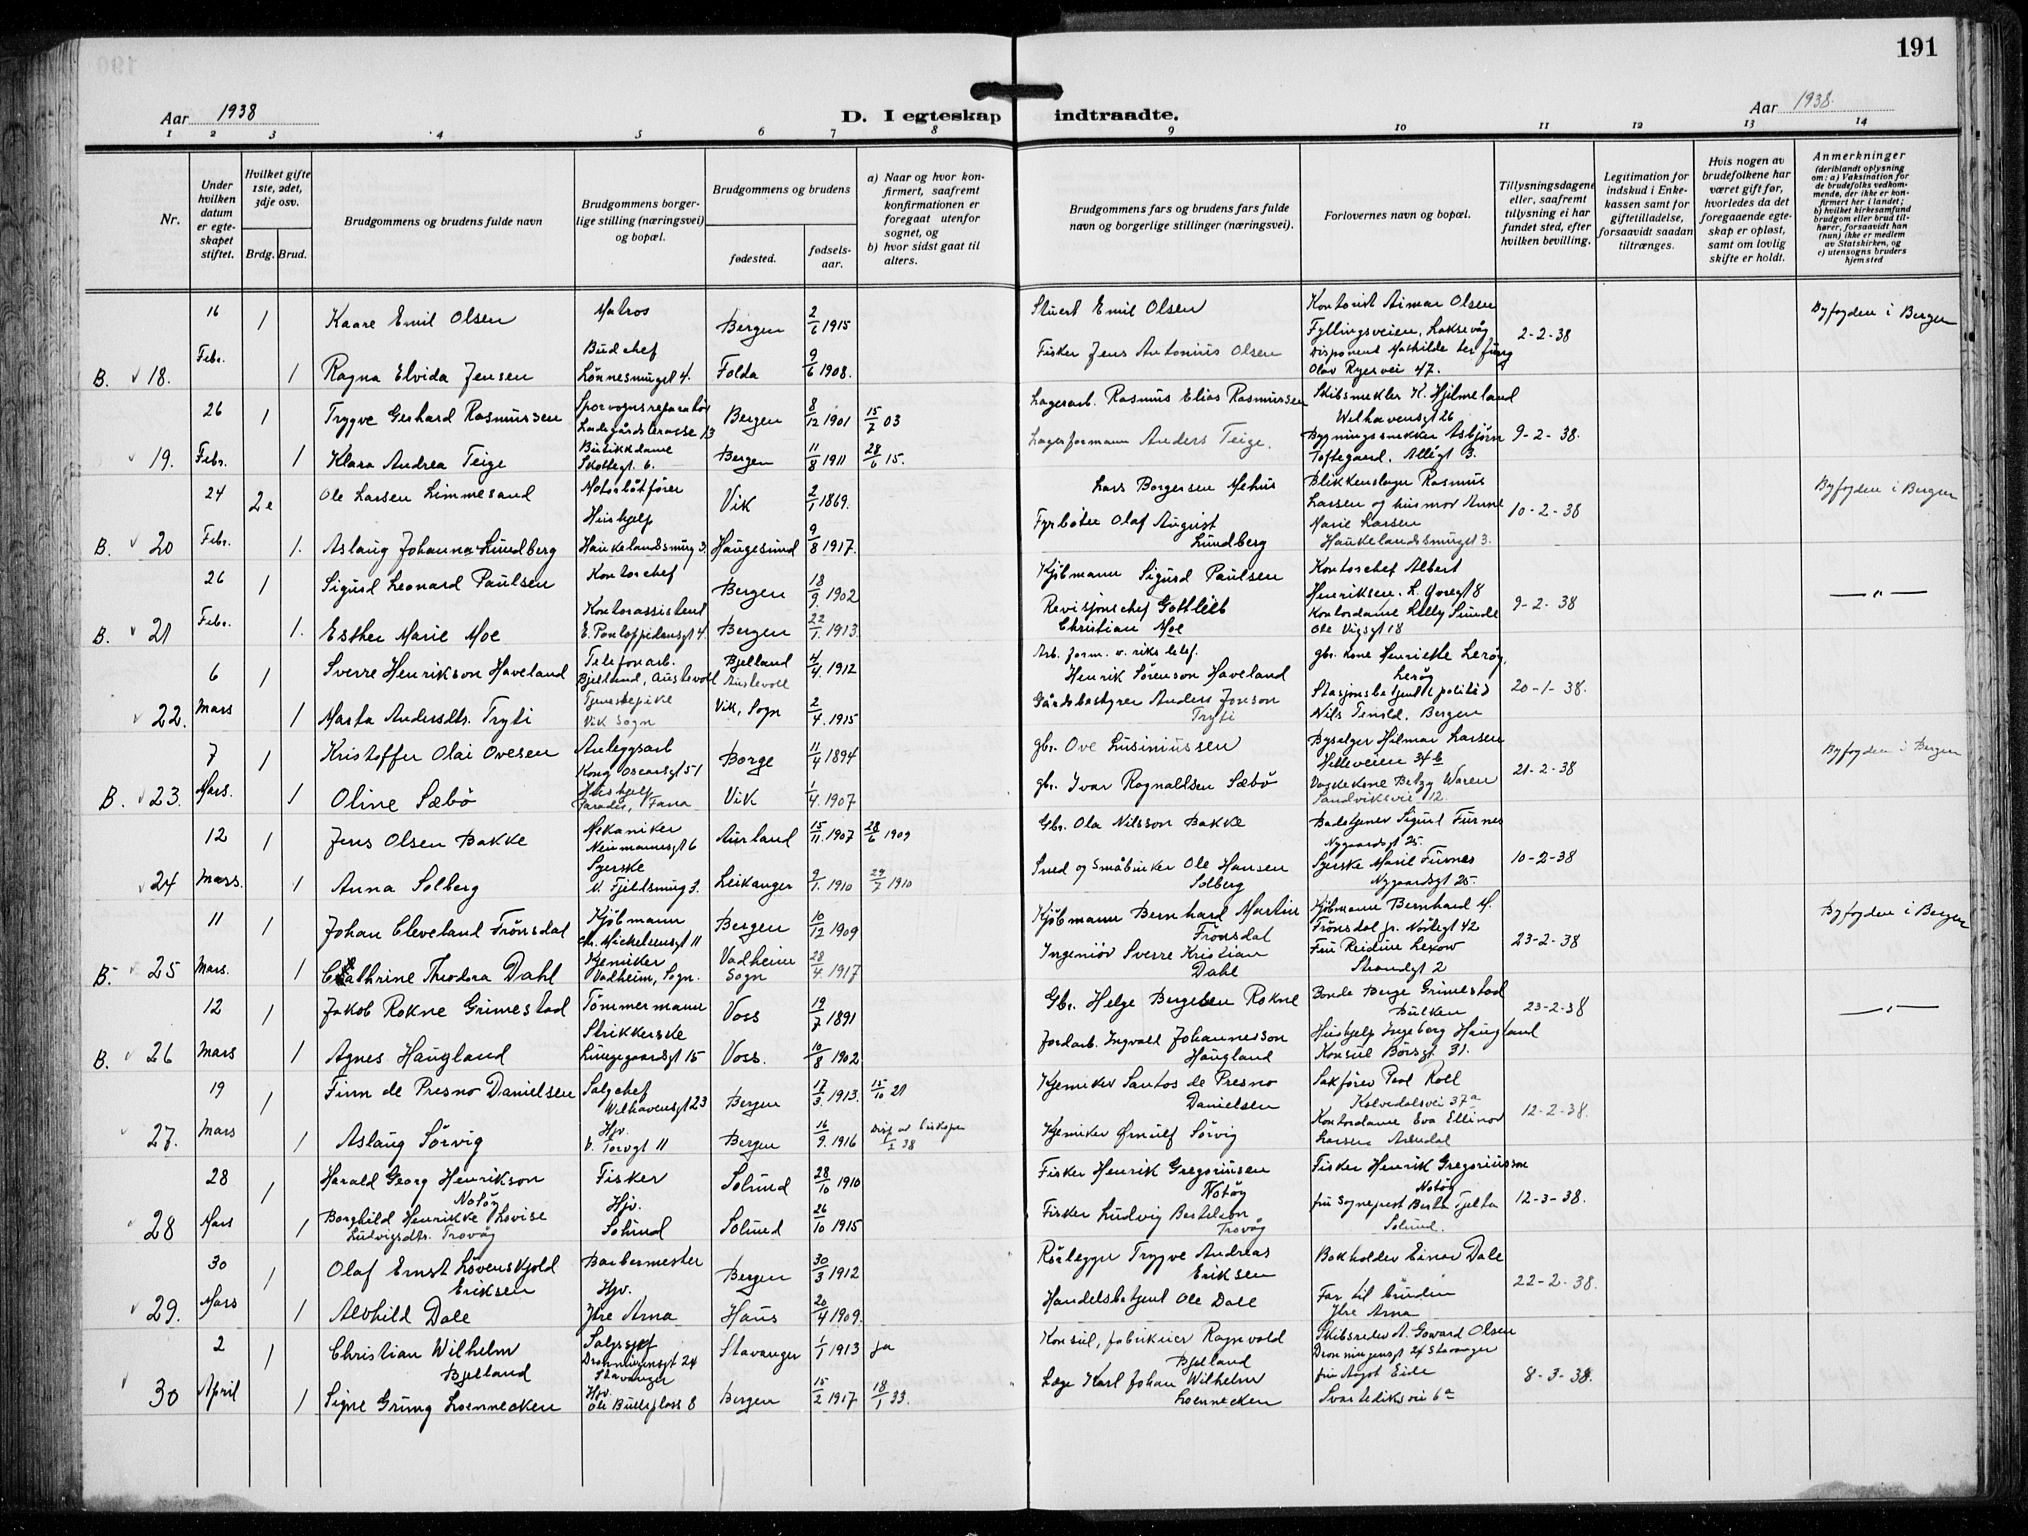 191
Aar 1938
D. I egteskap indtraadte.
Aar 1938.
1 2 3 4 5 6 7 8 9 10 11 12 13 14
Nr.
Under hvilken datum er egteskapet stiftet.
Hvilket gifte 1ste, 2det, 3dje osv.
Brdg. Brud.
Brudgommens og brudens fulde navn
Brudgommens borgerlige stilling (næringsvei) og bopæl.
Brudgommens og brudens
fødested.
fødselsaar.
a) Naar og hvor konfirmert, saafremt konfirmationen er foregaat utenfor sognet, og
b) hvor sidst gaat til alters.
Brudgommens fars og brudens fars fulde navn og borgerlige stillinger (næringsvei).
Forlovernes navn og bopæl.
Tillysningsdagene eller, saafremt tillysning ei har fundet sted, efter hvilken bevilling.
Legitimation for indskud i Enkekassen samt for giftetilladelse, forsaavidt saadan tiltrænges.
Hvis nogen av brudefolkene har været gift før, hvorledes da det foregaaende egteskap er opløst, samt om lovlig skifte er holdt.
Anmerkninger
(deriblandt oplysning om: a) Vaksination for de brudefolks vedkommende, der ikke er konfirmert her i landet; b) hvilket kirkesamfund brudgom eller brud tilhører, forsaavidt han (hun) ikke er medlem av Statskirken, og c) utensogns bruders hjemsted
16 1 Kaare Emil Olsen Matros Bergen 2/6 1915 Stuert Emil Olsen Kontorist Aimar Olsen Byfogden i Bergen
Fyllingsveien, Laksevåg 2-2-38
Febr. Budchef Fisker Jens Antonius Olsen Disponent Mathilde
B. 18. 1 Ragna Elvida Jensen Lønnesmuget 4. Folda 9/6 1908. Olav Ryes vei 47.
26 1 Trygve Gerhard Rasmussen Sporvognsreparatør Bergen 8/12 1901 15/2 03 Lagerarb. Rasmus Elias Rasmussen Skibsmekler K. Hjelmeland
Ladegårdsterasse 13 Welhavensgt 26
Butikkdame Lagerformann Anders Teige. Bygningssnekker Asbjørn 9-2-38.
19. Febr. 1 Klara Andrea Teige Skottegt. 6. Bergen 11/8 1911 28/6 15. Toftegaard, Allégt 3.
24 2e Ole Larsen Limmesand Motorbåtfører Vik 2/1 1869. Lars Borgersen Mehus Blikkenslager Rasmus Byfogden i Bergen
Hushjelp Fyrbøter Olaf August Larsen og husmor Anne 10-2-38
Marie Larsen
B. 20 Febr. 1. Aslaug Johanna Lundberg Haukelandsmug 3. Haugesund 9/8 1917. Lundberg Haukelandsmuget 3.
26 1 Sigurd Leonard Paulsen Kontorchef Bergen 18/9 1902 Kjøbmann Sigurd Paulsen Kontorchef Albert
Henriksen. — " —
Febr. Kontorassistent Revisjonschef Gottlieb Kontordame Lilly Sunde 9-2-38
B. 21 1. Esther Marie Moe E. Pontoppidansgt 4. Bergen 22/1 1913. Christian Moe Ole Vigsgt 18
6 1 Sverre Henrikson Haveland Telefonarb. Bjelland 4/4 1912 Arb. form. v. riks telef. gbr. kone Henrikke Lerøy,
Bjelland, Austevoll Austevoll Henrik Sørenson Haveland Lerøy
22. Mars 1 Marta Andersdtr. Tryti Tjenestepike Vik, Sogn 2/4. 1915 Gårdsbestyrer Anders Jonson Stasjonsbetjent (politi) 20-1-38.
Vik Sogn Tryti Nils Tenold, Bergen
7 1 Kristoffer Olai Ovesen Anleggsarb Borge 11/4 1894 gbr. Ove Lusiniussen Byselger Hilmar Larsen Byfogden i Bergen
Kong Oscarsgt 51 Helleveien 34 b
B. 23. Mars. 1 Oline Sæbø Hushjelp Vik 1/4. 1907 gbr. Ivar Ragnaldsen Sæbø Vaskekone Betzy Waren 21-2-38
Paradis, Fana Sandviksvei 12.
12 1 Jens Olsen Bakke Mekaniker Aurland 15/11 1907 28/6 1909 Gbr. Ola Nilsson Bakke Badetjener Sigurd Furnes
Neumannsgt 6 Nygaardsgt 25.
24 Mars. 1 Anna Solberg Syerske Leikanger 9/1. 1910 29/7 1910 Smed og Småbruker Ole Hansen Syerske Marie Furnes 10-2-38
N. Fjeldsmug 3. Solberg Nygaardsgt 25.
11 1 Johan Cleveland Frønsdal Kjøbmann Bergen 10/12 1909 Kjøbmann Bernhard Martin Kjøbmann Bernhard M. Byfogden i Bergen
Chr. Michelsensgt 11 Frønsdal Frønsdal jr. Nøstegt 42
B. 25 Mars. 1 Cathrine Theodora Dahl Kjemiker Vadheim 28/4. 1917 Ingeniør Sverre Kristian Fru Reidun Lexow 23-2-38
Vadheim, Sogn. Sogn Dahl Strandgt 2
12 1 Jakob Rokne Grimestad Tømmermann Voss 19/7 1891 Gbr. Helge Bergesen Rokne Bonde Berge Grimestad 23-2-38 — " —
Bulken
Strikkerske Jordarb. Ingvald Johannesson Hushjelp Ingeborg Haugland
B. 26 Mars 1 Agnes Haugland Lungegaardsgt 15 Voss. 10/8 1902 Haugland Konsul Børsgt. 31.
19 1 Finn de Presno Danielsen Salgchef Bergen 17/3. 1913. 15/10 27 Kjemiker Santos de Presno Sakfører Poul Roll
Welhavensgt 23 Danielsen Kalvedalsvei 37a
27. Mars 1 Aslaug Sørvig Hjv. Bergen 16/9. 1916 Disp av biskopen 1/2 38 Kjemiker Ørnulf Sørvig Kontordame Eva Ellinor 12-2-38.
v. Torvgt 11 Larsen Arendal
28 1 Harald Georg Henrikson Fisker Solund 28/10 1910 Fisker Henrik Gregoriusen Fisker Henrik Gregoriusson
Notøy Notøy Notøy
28 Mars 1 Borghild Henrikke Lovise Hjv. Solund 26/10 1915 Fisker Ludvig Bertelsen fru Sogneprest Berta Tjelta 12-3-38.
Ludvigsdtr. Trovåg Solund Trovåg Solund.
30 1 Olaf Ernst Løvenskjold Barbermester Bergen 30/3 1912 Rørlegger Trygve Andreas Bokholder Einar Dale
Eriksen Hjv. Eriksen 22-2-38.
29. Mars 1 Alvhild Dale Ytre Arna Haus 20/4 1909. Handelsbetjent Ole Dale Far til bruden
Ytre Arna
2 1 Christian Wilhelm Salgssjef Stavanger 1/1 1913 ja Konsul, fabrikeier Ragnvald Skibsreder A. Goward Olsen
Bjelland Dronningensgt 24 Stavanger Bjelland Dronningensgt 24 Stavanger
30 April 1 Signe Grung Loennecken Hjv. Bergen 15/2 1917 18/1 33. Læge Karl Johan Wilhelm fru Aagot Eide 8-3-38.
Ole Bullsplass 8 Loennecken Svartediksvei 6a